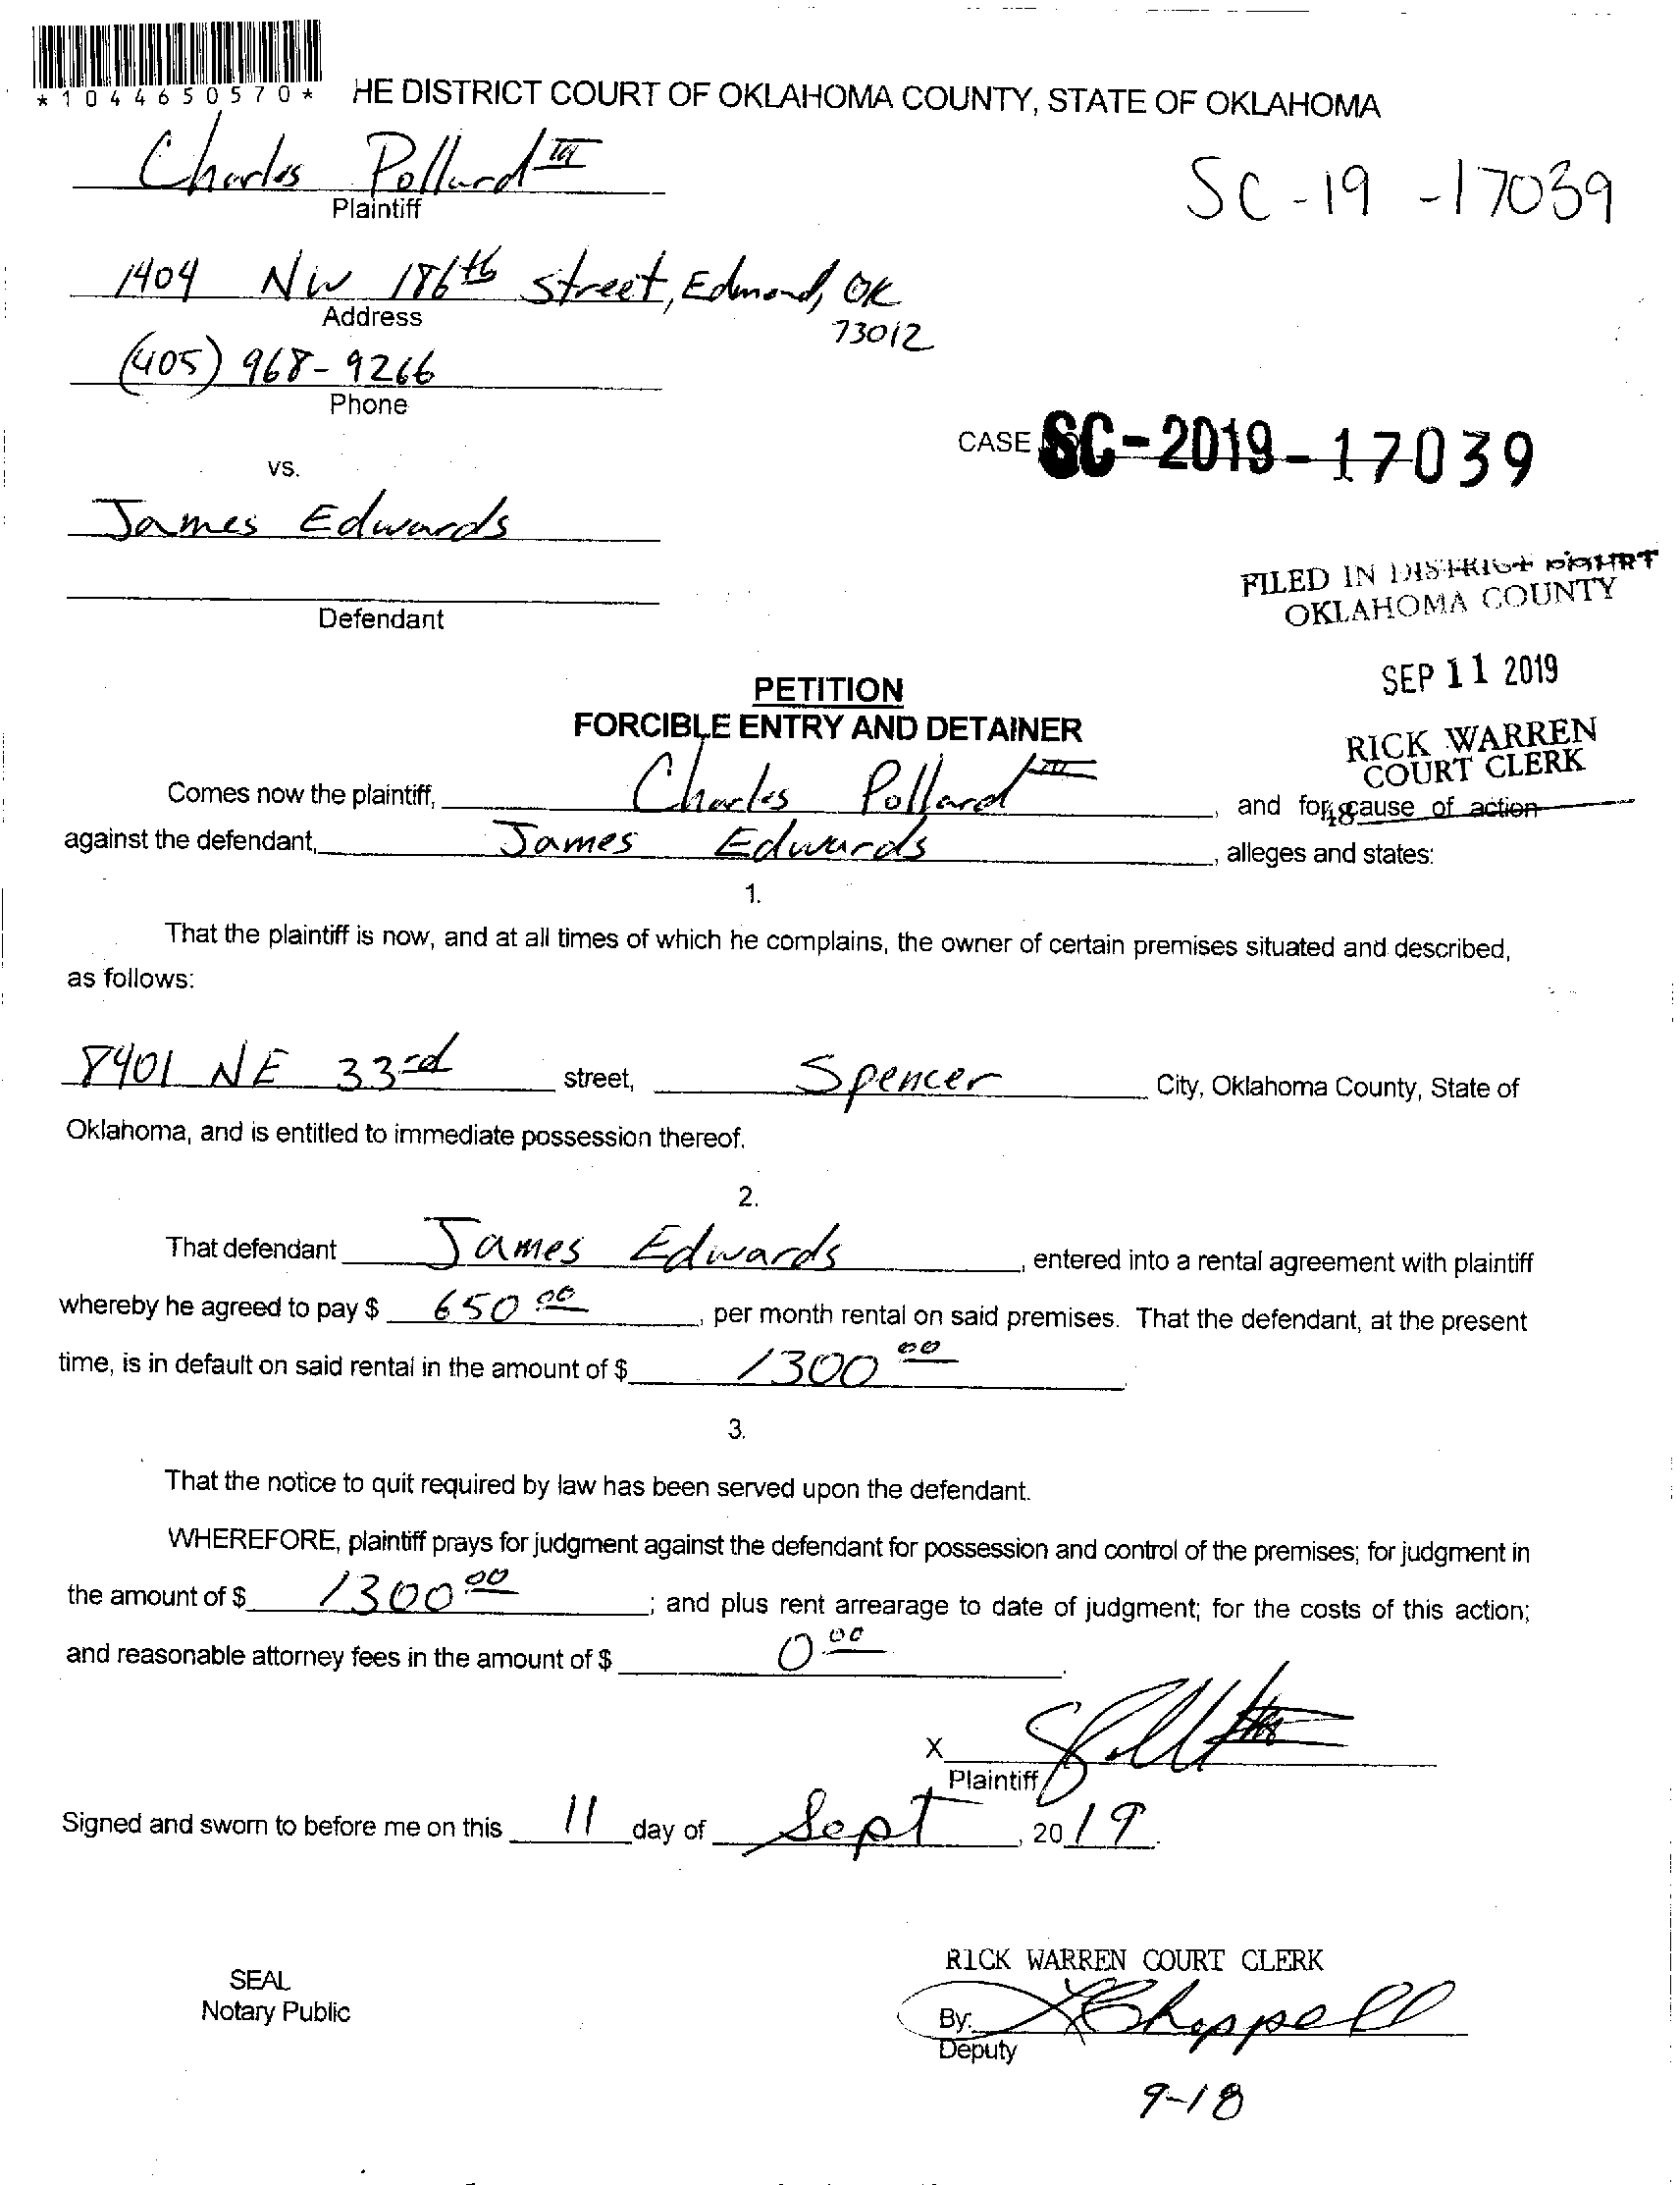 *1044650570*
HE DISTRICT COURT OF OKLAHOMA COUNTY, STATE OF OKLAHOMA
Charles Pollard III
Plaintiff
SC-19-17039
1404 NW 186th Street, Edmond, OK
Address
73012
(405) 968-9266
Phone
CASE SC-2019-17039
vs.
James Edwards
FILED IN DISTRICT COURT
OKLAHOMA COUNTY
Defendant
SEP 11 2019
PETITION
FORCIBLE ENTRY AND DETAINER
RICK WARREN
COURT CLERK
Comes now the plaintiff, Charles Pollard III, and for cause of action
48
against the defendant, James Edwards, alleges and states:
1.
That the plaintiff is now, and at all times of which he complains, the owner of certain premises situated and described,
as follows:
8401 NE 33rd street, Spencer City, Oklahoma County, State of
Oklahoma, and is entitled to immediate possession thereof.
2.
That defendant James Edwards, entered into a rental agreement with plaintiff
whereby he agreed to pay $ 650 00, per month rental on said premises. That the defendant, at the present
time, is in default on said rental in the amount of $ 1300 00.
3.
That the notice to quit required by law has been served upon the defendant.
WHEREFORE, plaintiff prays for judgment against the defendant for possession and control of the premises; for judgment in
the amount of $ 1300 00; and plus rent arrearage to date of judgment; for the costs of this action;
and reasonable attorney fees in the amount of $ 0 00.
X
Plaintiff
Signed and sworn to before me on this 11 day of Sept, 2019.
RICK WARREN COURT CLERK
SEAL
Notary Public
By: Cheppell
Deputy
9-18